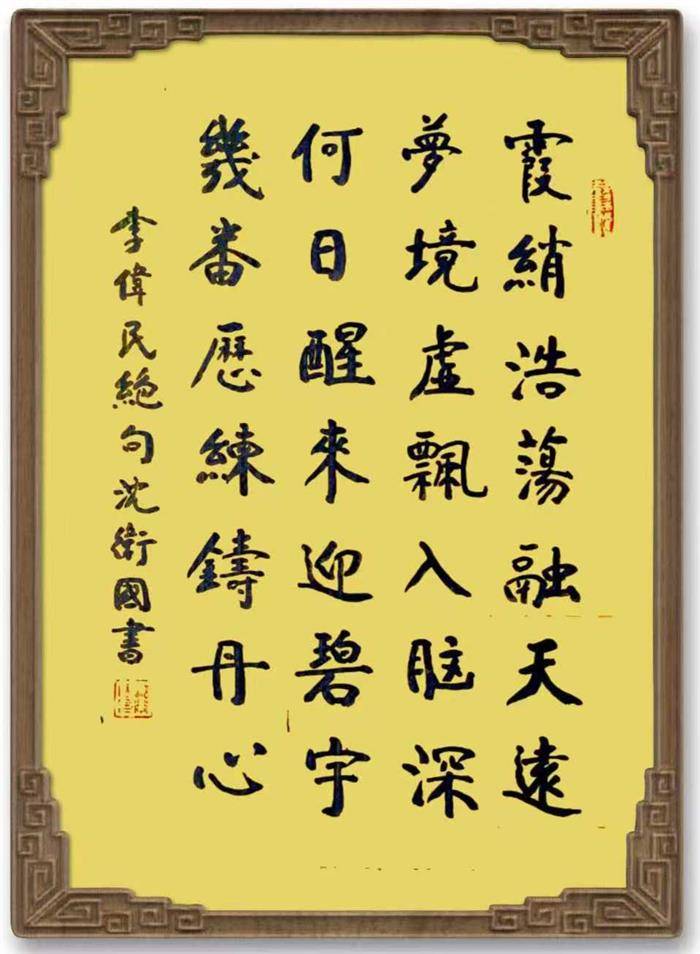 霞綃浩蕩融天遠
夢境虛飄入脑深
何日醒來迎碧宇
幾番歷練鑄丹心
李偉民絕句沈衛國書